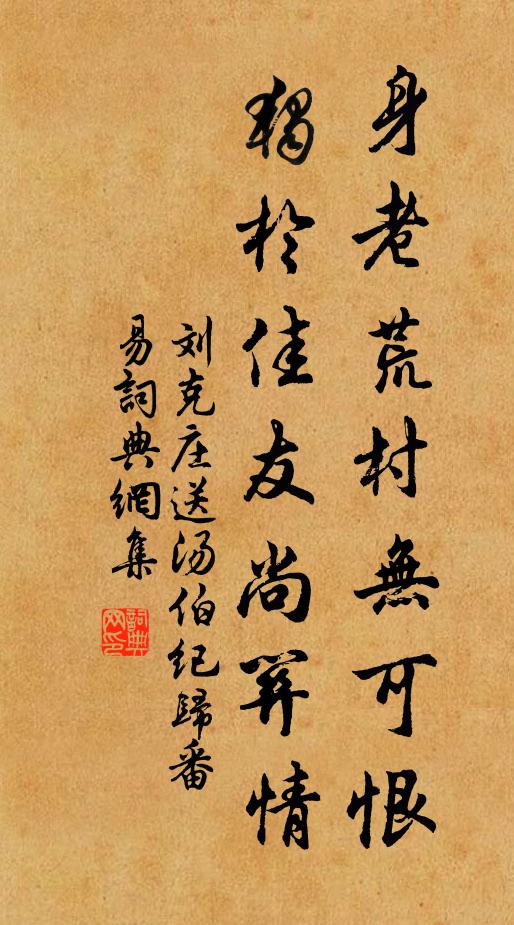 身老荒村無可恨
獨於佳友尚關情
刘克庄送汤伯纪歸番
易詞典網集
詞典网印